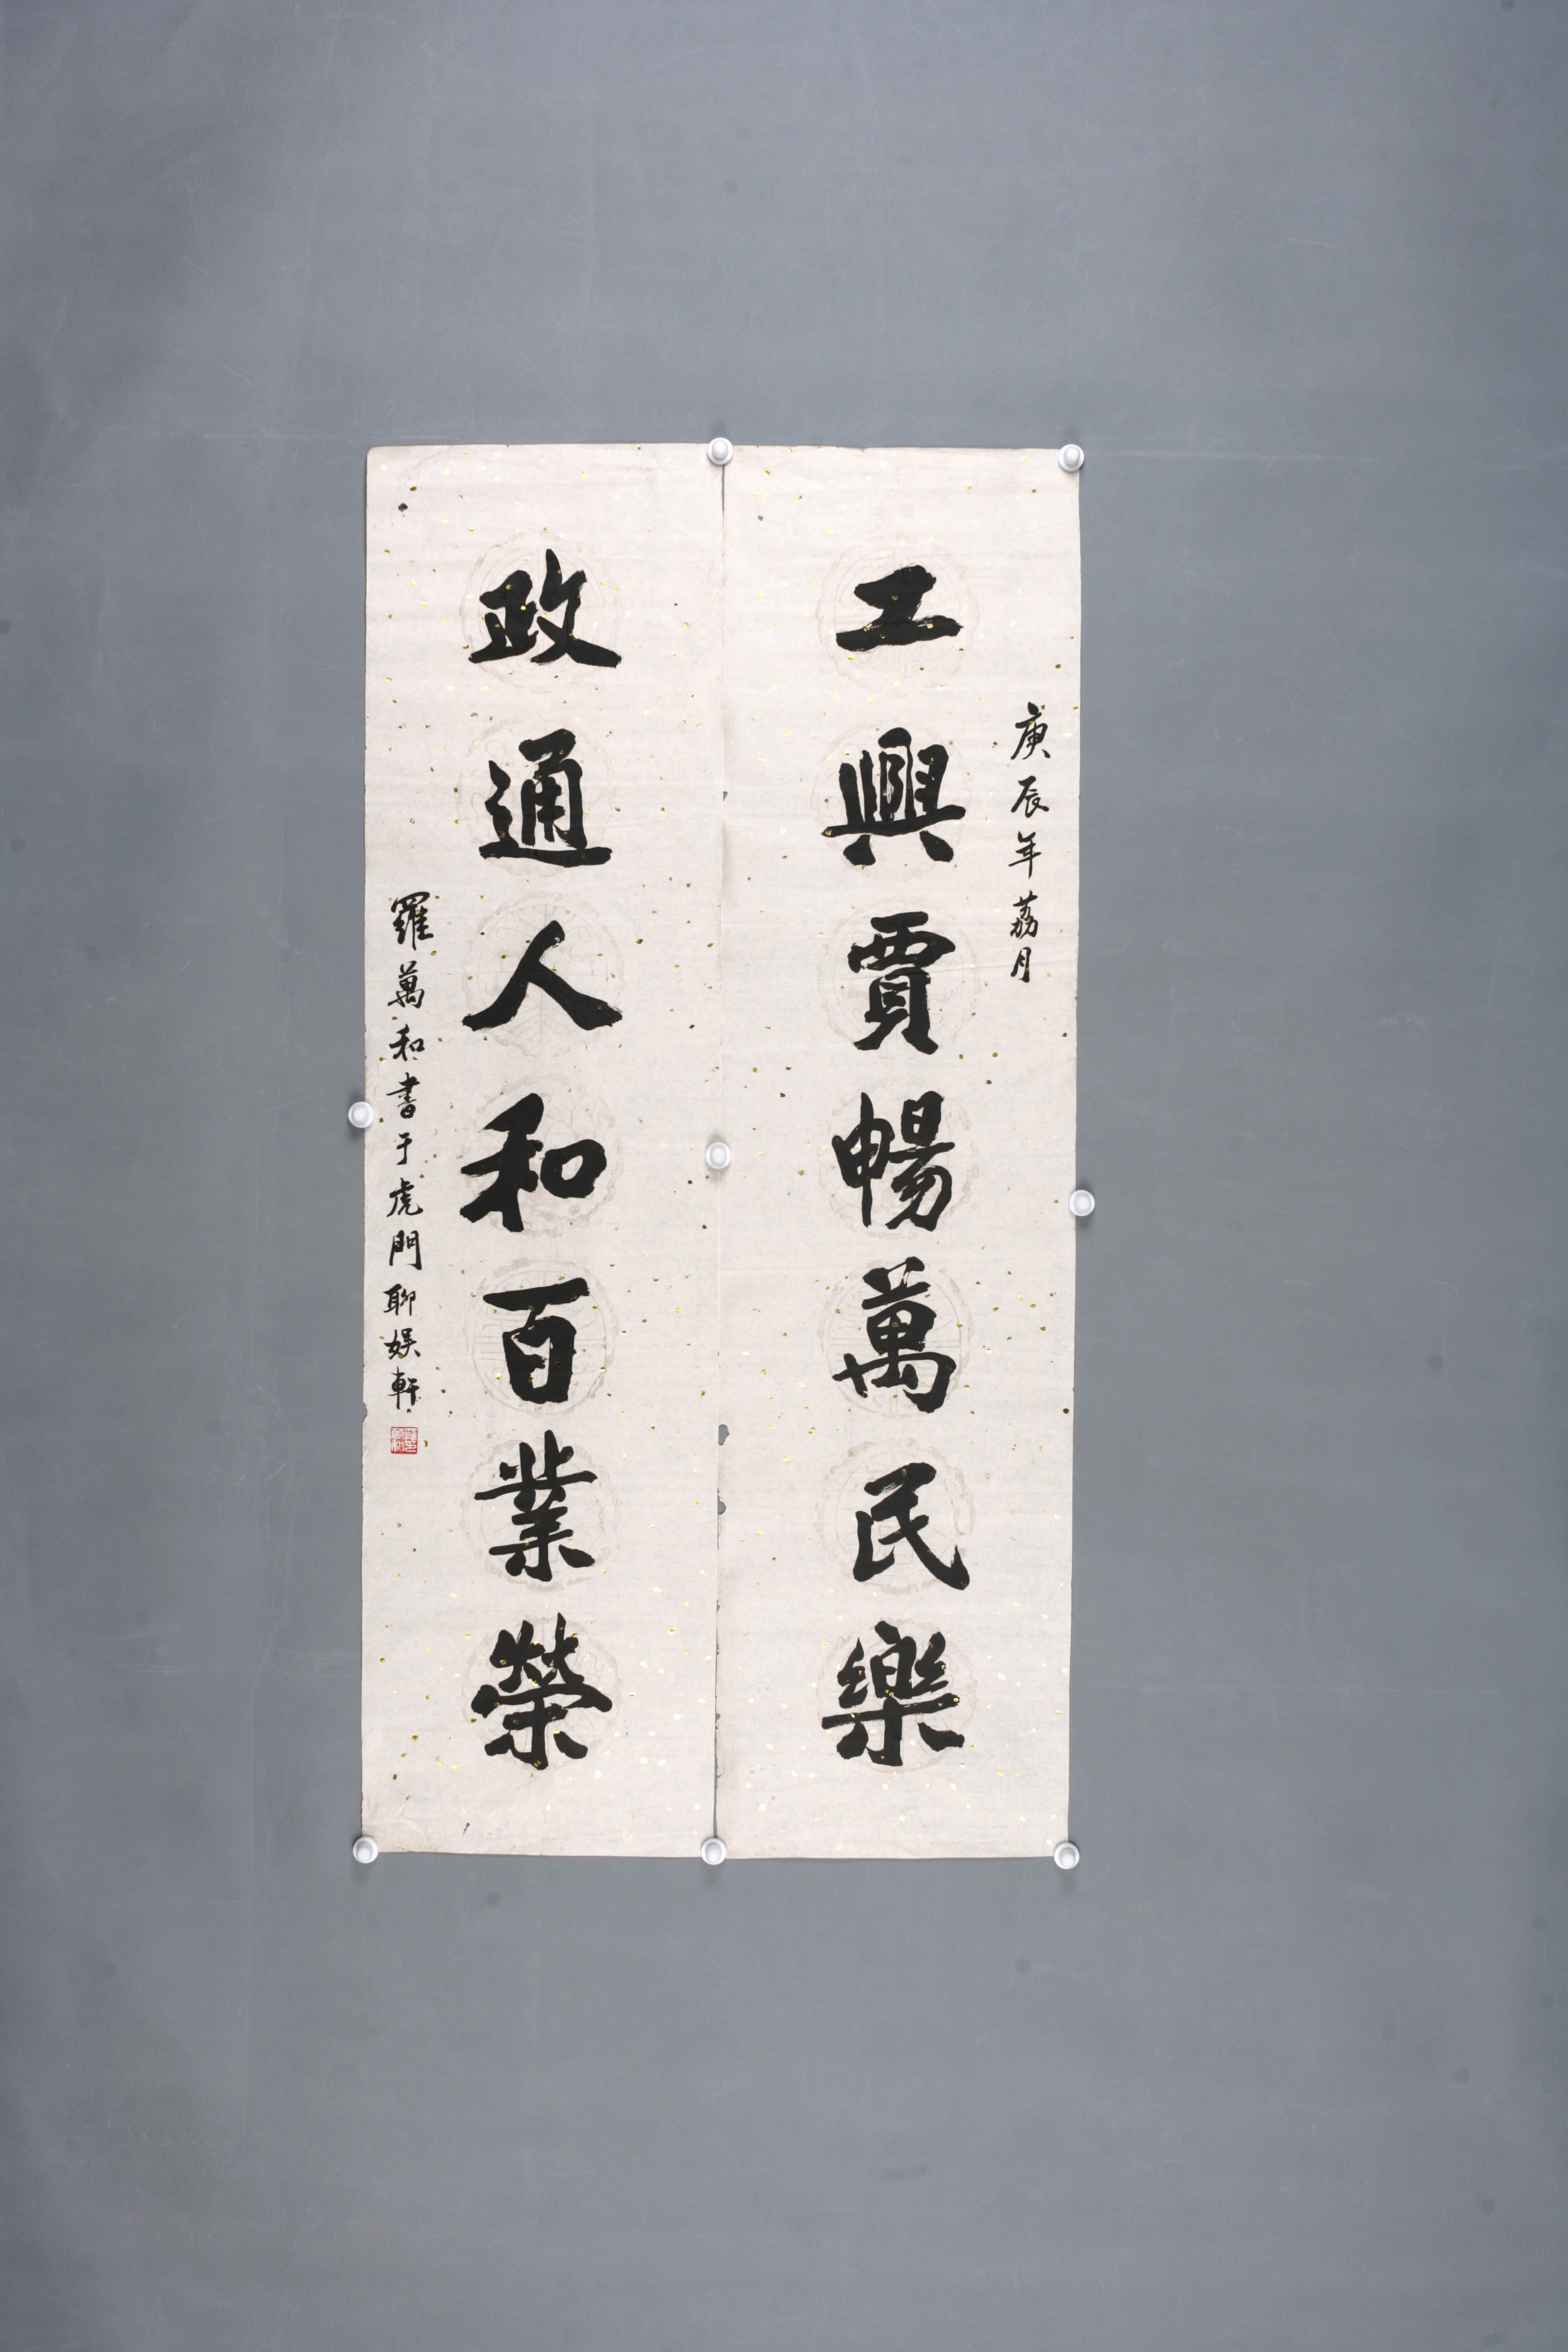 庚辰年荔月
工興賈暢萬民樂
政通人和百業榮
羅萬和書于虎門聊娛軒